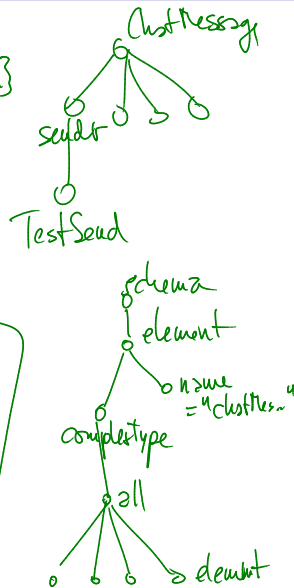 ChatMessage
sender
TestSend
schema
element
name
="ChatMes~"
complextype
all
element